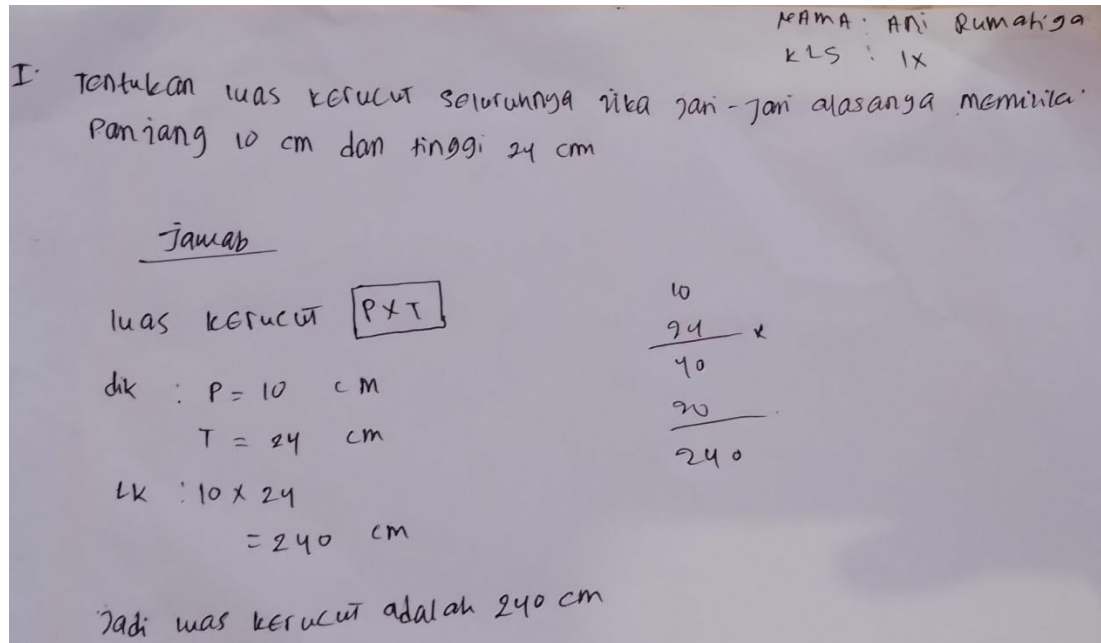 NAMA : Ani Rumatiga
KLS : IX
I. Tentukan luas kerucut seluruhnya jika jari-jari alasanya memilika
Panjang 10 cm dan tinggi 24 cm
Jawab
luas kerucut P X T
dik : P = 10 cm
T = 24 cm
LK : 10 x 24
= 240 cm
Jadi luas kerucut adalah 240 cm
10
24 x
40
20
240